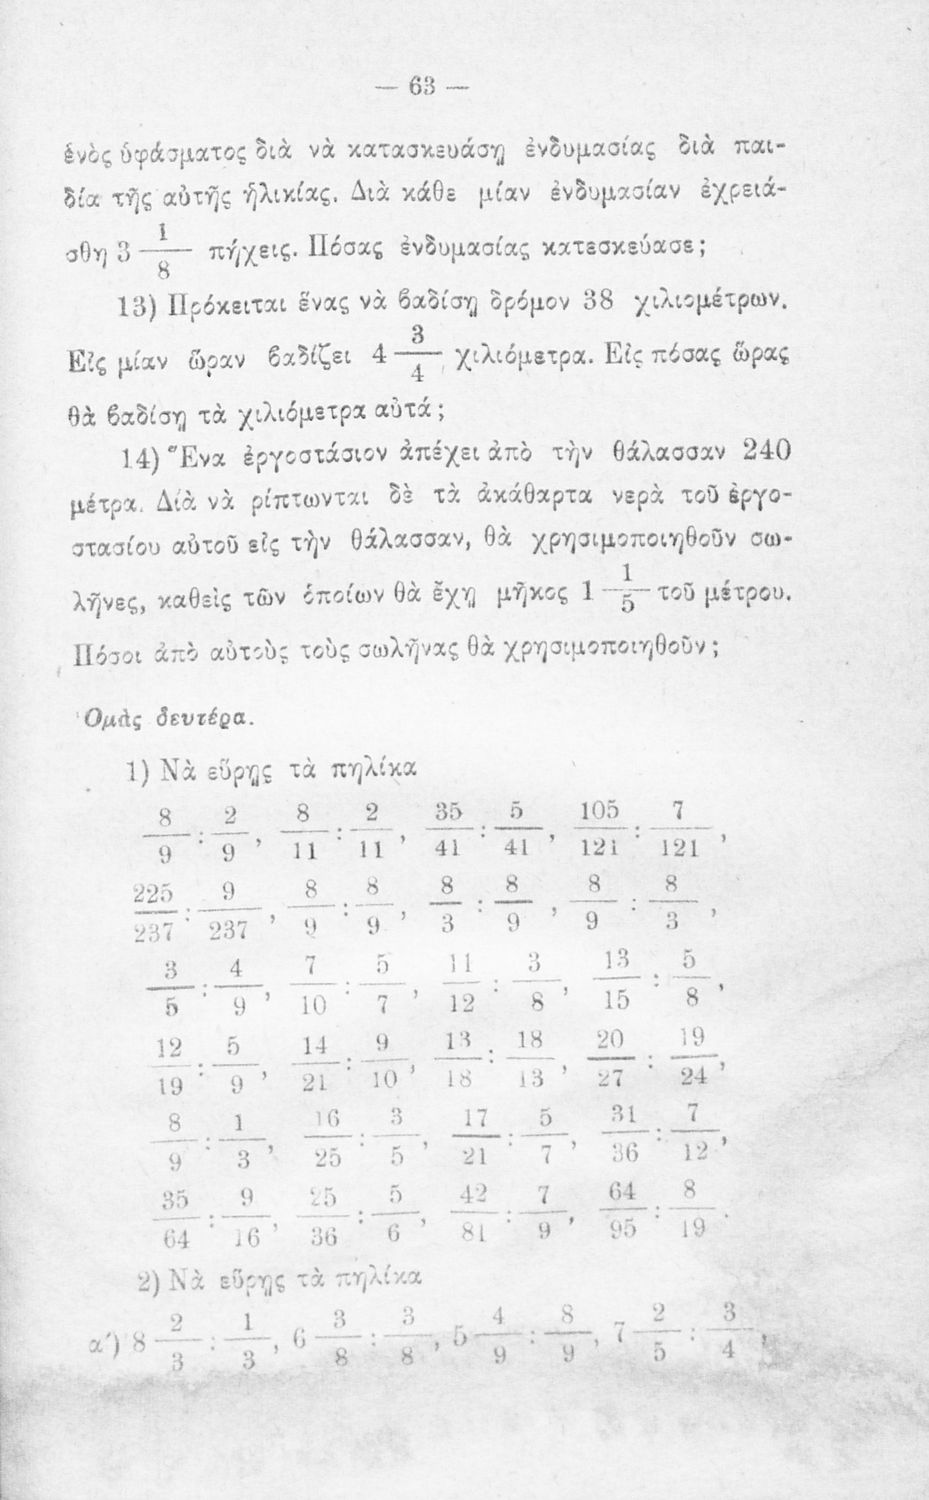 — 63 —
ἑνὸς ὑφάσματος διὰ νὰ κατασκευάσῃ ἐνδυμασίας διὰ παι-
δία τῆς αὐτῆς ἡλικίας. Διὰ κάθε μίαν ἐνδυμασίαν ἐχρειά-
σθη 3 1/8 πήχεις. Πόσας ἐνδυμασίας κατεσκεύασε;
13) Πρόκειται ἕνας νὰ βαδίσῃ δρόμον 38 χιλιομέτρων.
Εἰς μίαν ὥραν βαδίζει 4 3/4 χιλιόμετρα. Εἰς πόσας ὥρας
θὰ βαδίσῃ τὰ χιλιόμετρα αὐτά;
14) Ἕνα ἐργοστάσιον ἀπέχει ἀπὸ τὴν θάλασσαν 240
μέτρα. Διὰ νὰ ρίπτωνται δὲ τὰ ἀκάθαρτα νερὰ τοῦ ἐργο-
στασίου αὐτοῦ εἰς τὴν θάλασσαν, θὰ χρησιμοποιηθοῦν σω-
λῆνες, καθεὶς τῶν ὁποίων θὰ ἔχῃ μῆκος 1 1/5 τοῦ μέτρου.
Πόσοι ἀπὸ αὐτοὺς τοὺς σωλῆνας θὰ χρησιμοποιηθοῦν;
Ὁμὰς δευτέρα.
1) Νὰ εὕρῃς τὰ πηλίκα
8/9 : 2/9, 8/11 : 2/11, 35/41 : 5/41, 105/121 : 7/121,
225/237 : 9/237, 8/9 : 8/9, 8/3 : 8/9, 8/9 : 8/3,
3/5 : 4/9, 7/10 : 5/7, 11/12 : 3/8, 13/15 : 5/8,
12/19 : 5/9, 14/21 : 9/10, 13/18 : 18/13, 20/27 : 19/24,
8/9 : 1/3, 16/25 : 3/5, 17/21 : 5/7, 31/36 : 7/12,
35/64 : 9/16, 25/36 : 5/6, 42/81 : 7/9, 64/95 : 8/19.
2) Νὰ εὕρῃς τὰ πηλίκα
α΄) 8 2/3 : 1/3, 6 3/8 : 3/8, 5 4/9 : 8/9, 7 2/5 : 3/4,